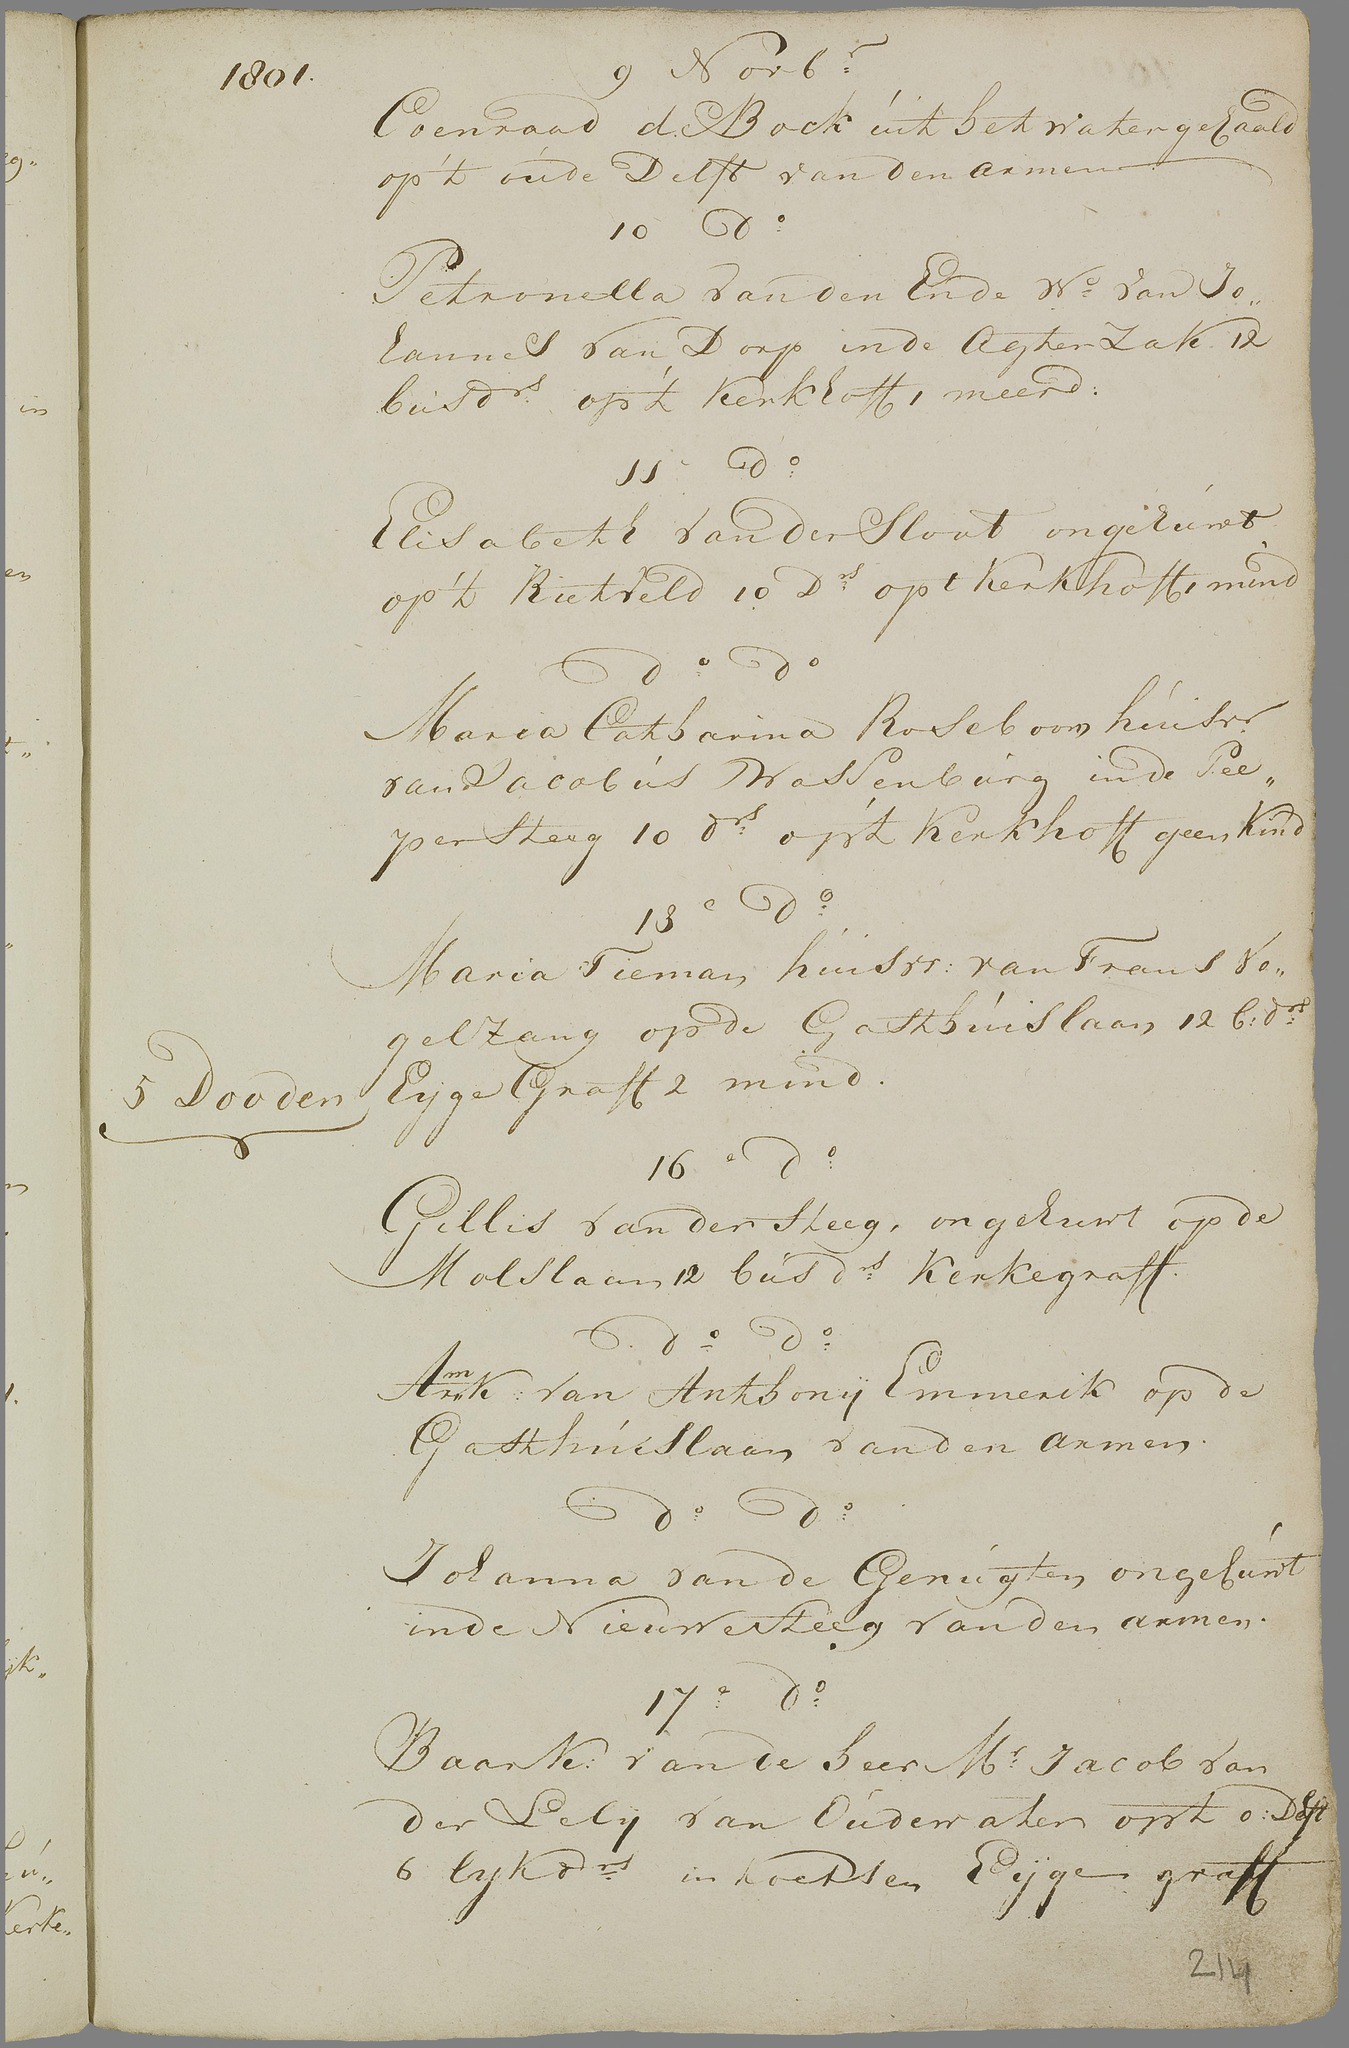 1801.
9 Novbr:
Coenraad de Bock uit het water gehaald
op't oude Delft van den armen
10 do:
Petronella van den Ende We van Jo„
hannes van Dorp in de Agter Zak 12
busdrs: op't Kerkhoff 1 meerd:
11 do:
Elisabeth van der Slout ongehuwt
op't Rietveld 10 Drs: opt Kerkhoff 1 mind
do: do:
Maria Catharina Roseboom huisvr:
van Jacobus Wassenburg in de Pee„
persteeg 10 drs: op't Kerkhoff geen Kind
13e do:
Maria Tieman huisvr: van Frans Vo„
gelzang op de Gasthuislaan 12 b:drs:
5 Dooden
Eyge Graff 2 mind.
16e do:
Gillis van der Steeg, ongehuwt op de
Molslaan 12 busdrs: Kerkegraff.
do: do:
Armk: van Anthonij Emmerik op de
Gasthuislaan van den armen.
do: do:
Johanna van de Genugten ongehuwt
in de Nieuwesteeg van den armen.
17e do:
Baark: van de heer Mr: Jacob van
der Lely van Oudewater op't o: Delft
6 lykdrs: in koetsen Eijge graff
214